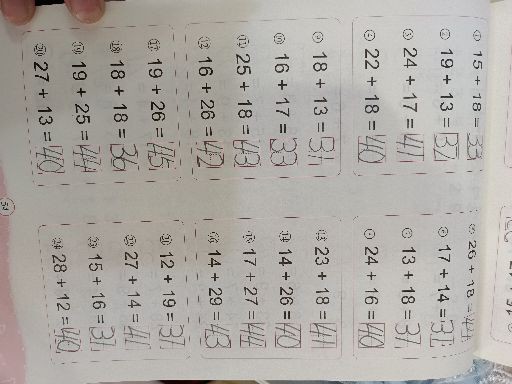 ① 15 + 18 = 33
② 19 + 13 = 32
③ 24 + 17 = 41
④ 22 + 18 = 40
⑤ 26 + 18 = 44
⑥ 17 + 14 = 31
⑦ 13 + 18 = 31
⑧ 24 + 16 = 40
⑨ 18 + 13 = 31
⑩ 16 + 17 = 33
⑪ 25 + 18 = 43
⑫ 16 + 26 = 42
⑬ 23 + 18 = 41
⑭ 14 + 26 = 40
⑮ 17 + 27 = 44
⑯ 14 + 29 = 43
⑰ 19 + 26 = 45
⑱ 18 + 18 = 36
⑲ 19 + 25 = 44
⑳ 27 + 13 = 40
㉑ 12 + 19 = 31
㉒ 27 + 14 = 41
㉓ 15 + 16 = 31
㉔ 28 + 12 = 40